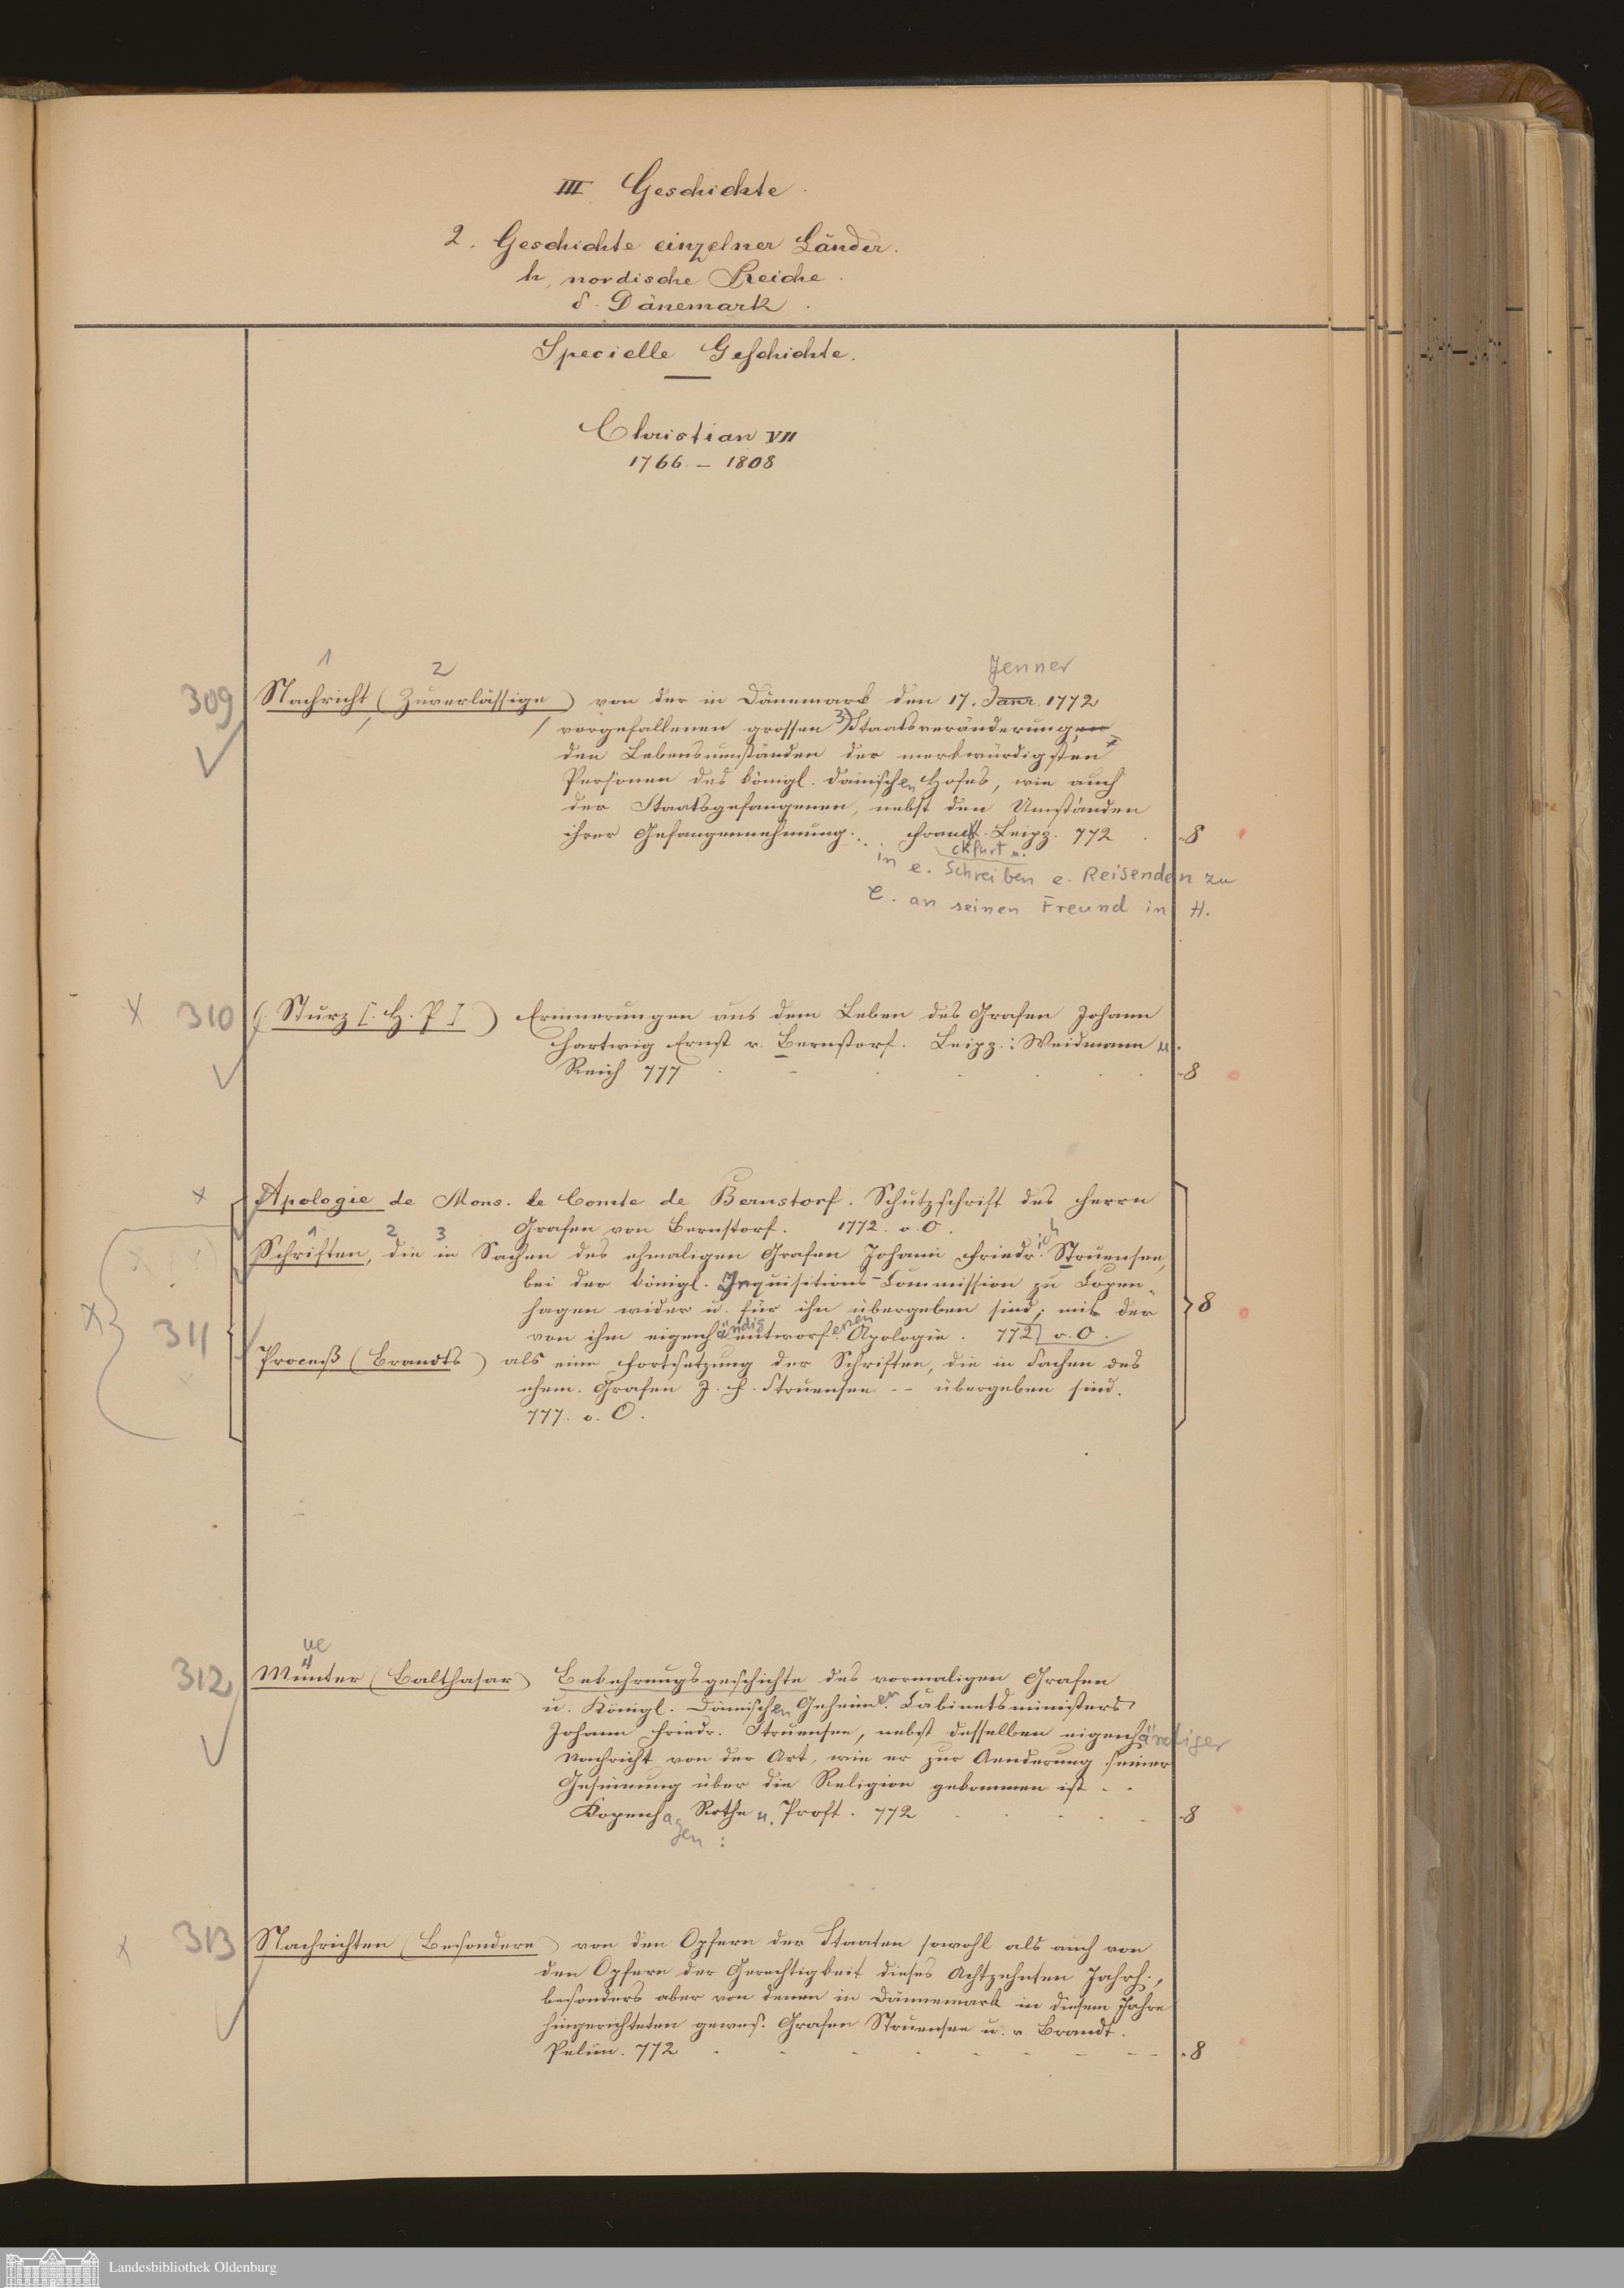 III. Geschichte.
2. Geschichte einzelner Länder.
h, nordische Reiche.
δ. Dänemark.
Specielle Geschichte.
Christian VII
1766. – 1808
1 2 Jenner
309 Nachricht (Zuverlässige) von der in Dänemark den 17. Janr. 1772
vorgefallenen grossen 3) Staatsveränderungen
den Lebensumständen der merkwürdigsten
Personen des königl. dänischen Hofes, wie auch
der Staatsgefangenen, nebst den Umständen
ihrer Gefangennehmung. Franckf. Leipz. 772 8
ckfurt u.
in e. Schreiben e. Reisenden zu
C. an seinen Freund in H.
x 310 (Sturz [. H. P. ]) Erinnerungen aus dem Leben des Grafen Johann
Hartwig Ernst v. Bernstorf. Leipz.: Weidmann u.
Reich 777 8
x Apologie de Mons. le Comte de Bernstorf. Schutzschrift des Herrn
Grafen von Bernstorf. 1772. o. O.
1 2 3
Schriften, die in Sachen des ehmaligen Grafen Johann Friedrich Struensee,
bei der königl. Inquisitions-Commission zu Copen-
hagen wider u. für ihn übergeben sind; mit der 8
x 311 von ihm eigenhändig entworfenen Apologie. 772 o. O.
Proceß (Brandts) als eine Fortsetzung der Schriften, die in Sachen des
ehem. Grafen J. F. Struensee -- übergeben sind.
777. o. O.
ue
4
312 Münter (Balthasar) Bekehrungsgeschichte des vormaligen Grafen
u. Königl. Dänischen Geheimen Cabinetsministers
Johann Friedr. Struensee, nebst desselben eigenhändiger
Nachricht von der Art, wie er zur Aenderung seiner
Gesinnung über die Religion gekommen ist - -
Kopenhagen: Rothe u. Proft. 772 8
x 313 Nachrichten (Besondere) von den Opfern der Staaten sowohl als auch von
den Opfern der Gerechtigkeit dieses Achtzehnten Jahrh.,
besonders aber von denen in Dännemark in diesem Jahre
hingerichteten gewes. Grafen Struensee u. v Brandt.
Pelim. 772 8
Landesbibliothek Oldenburg